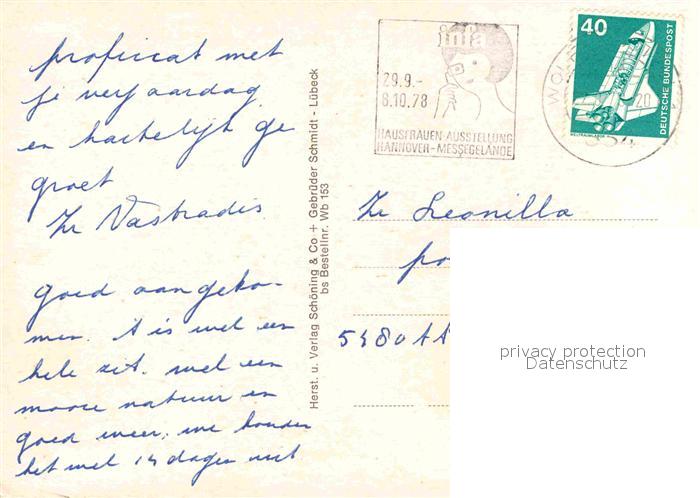 proficiat met
je verjaardag
en hartelijk ge
groet
Zr Vastradis
goed aangeko-
men. 't is wel een
hele zit. wel een
mooie natuur en
goed weer, we houden
het wel 14 dagen uit
Herst. u. Verlag Schöning & Co + Gebrüder Schmidt - Lübeck
bs Bestellnr. Wb 153
infa
29.9.-
8.10.78
HAUSFRAUEN-AUSSTELLUNG
HANNOVER-MESSEGELÄNDE
40
DEUTSCHE BUNDESPOST
WELTRAUMLABOR
WOL
20
Zr Leonilla
po
5480 AA
privacy protection
Datenschutz